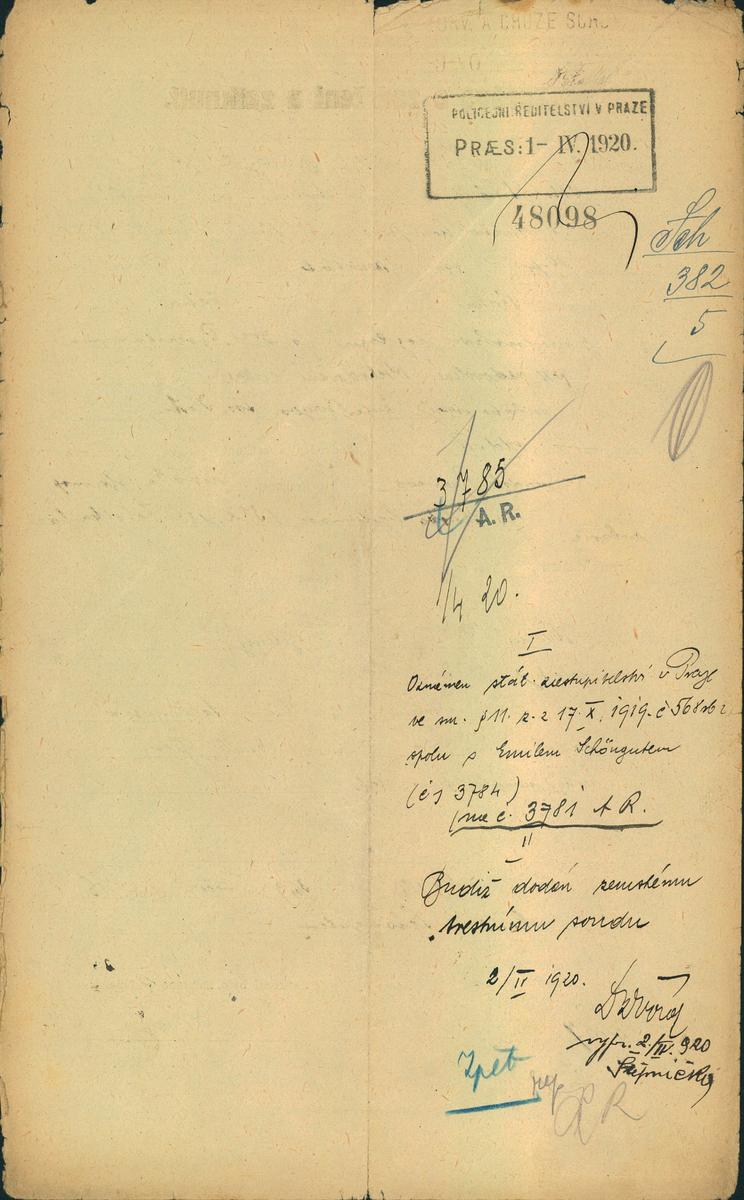 POLICEJNÍ ŘEDITELSTVÍ V PRAZE
PRÆS: 1- IV. 1920.
48098
Sch
382
5
3785
A. R.
1/4 20.
I
Oznámen stát. zastupitelství v Praze
ve sm. § 11. z. z 17. X. 1919. č 568 sb z
spolu s Emilem Schöngutem
(čj 3784)
(na č. 3781 A R.
II
Budiž dodán zemskému
trestnímu soudu
2/IV 1920.
Dvořá
vypr. 2./IV. 920
Štěpnička
Zpět
A R